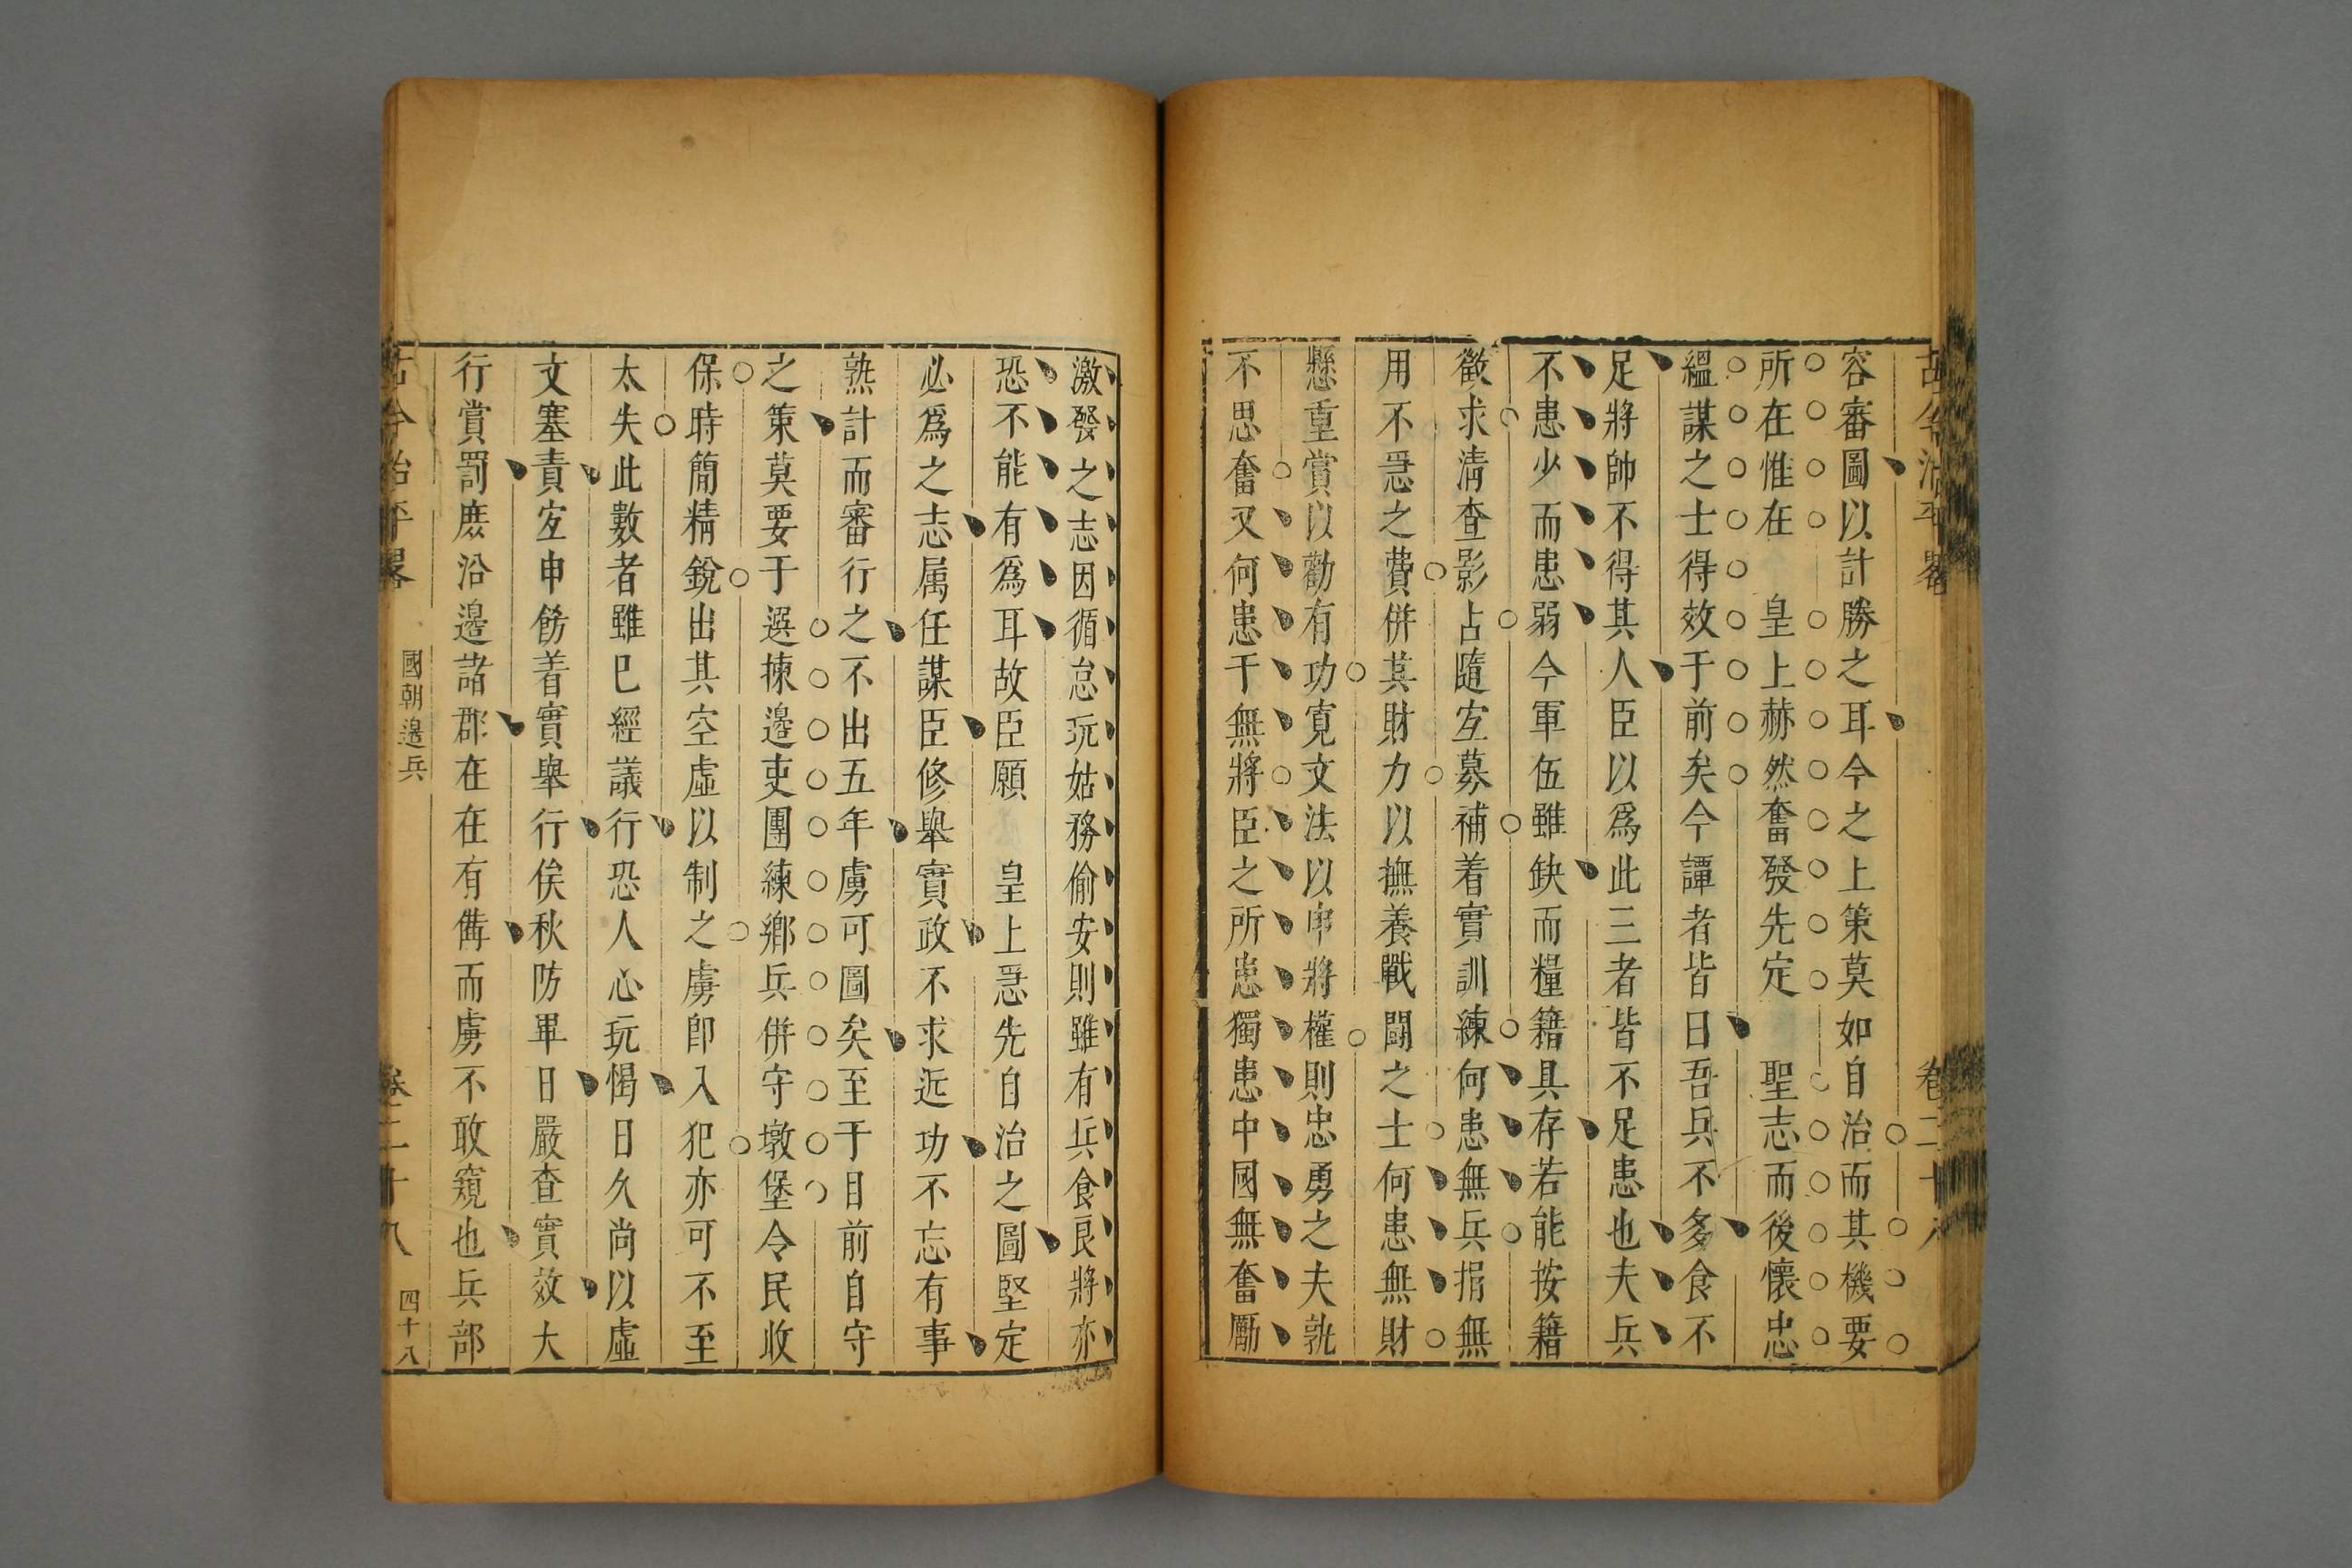 古今治平畧 卷二十八
容審圖以計勝之耳今之上策莫如自治而其機要
所在惟在 皇上赫然奮發先定 聖志而後懷忠
緼謀之士得效于前矣今譚者皆曰吾兵不多食不
足將帥不得其人臣以爲此三者皆不足患也夫兵
不患少而患弱今軍伍雖缺而糧籍具存若能按籍
徵求清查影占隨宐募補着實訓練何患無兵捐無
用不急之費併其財力以撫養戰鬪之士何患無財
懸重賞以勸有功寬文法以申將權則忠勇之夫孰
不思奮又何患于無將臣之所患獨患中國無奮勵
激發之志因循怠玩姑務偷安則雖有兵食良將亦
恐不能有爲耳故臣願 皇上急先自治之圖堅定
必爲之志属任謀臣修舉實政不求近功不忘有事
熟計而審行之不出五年虜可圖矣至于目前自守
之策莫要于選揀邊吏團練鄉兵併守墩堡令民收
保時簡精銳出其空虛以制之虜即入犯亦可不至
太失此數者雖已經議行恐人心玩愒日久尚以虛
文塞責宐申飭着實舉行俟秋防畢日嚴查實效大
行賞罰庶沿邊諸郡在在有備而虜不敢窺也兵部
古今治平畧 國朝邊兵 卷二十八 四十八